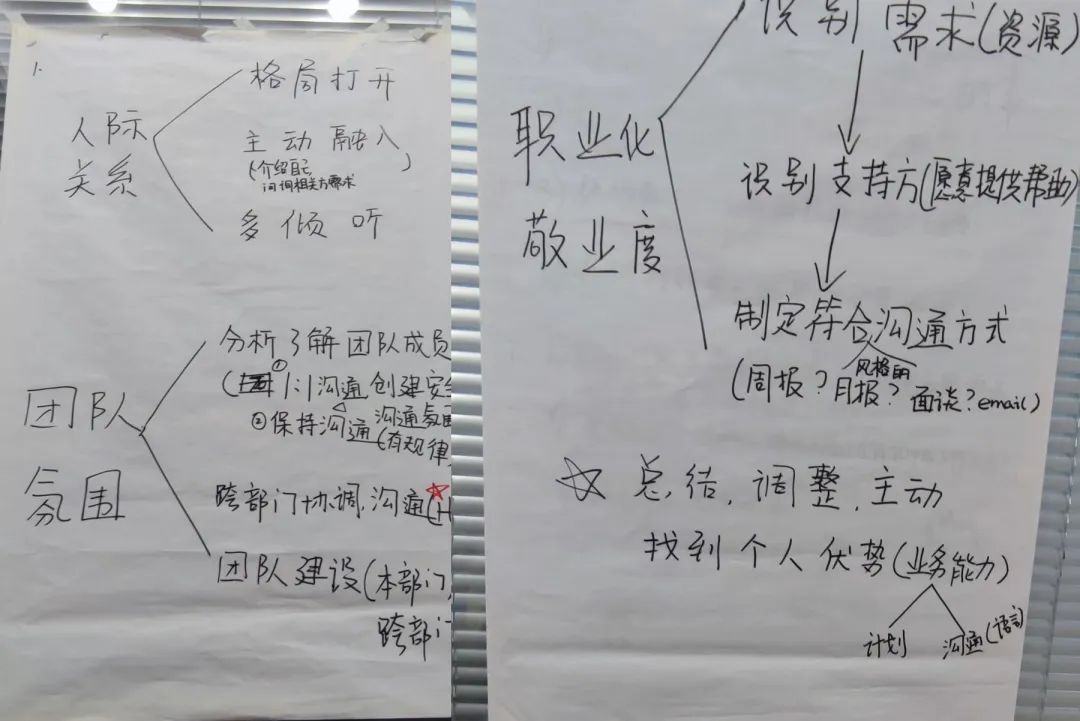 1.
人际
关系
格局打开
主动融入
(介绍自己
问询相关方需求)
多倾听
团队
氛围
分析了解团队成员
(① 1:1沟通 创建安全
沟通氛围
②保持沟通(有规律
跨部门协调,沟通(
团队建设(本部门,
跨部门
职业化
敬业度
识别需求(资源)
识别支持方(愿意提供帮助)
制定符合沟通方式
风格的
(周报?月报?面谈?email)
☆ 总结,调整,主动
找到个人优势(业务能力)
计划 沟通(语言)